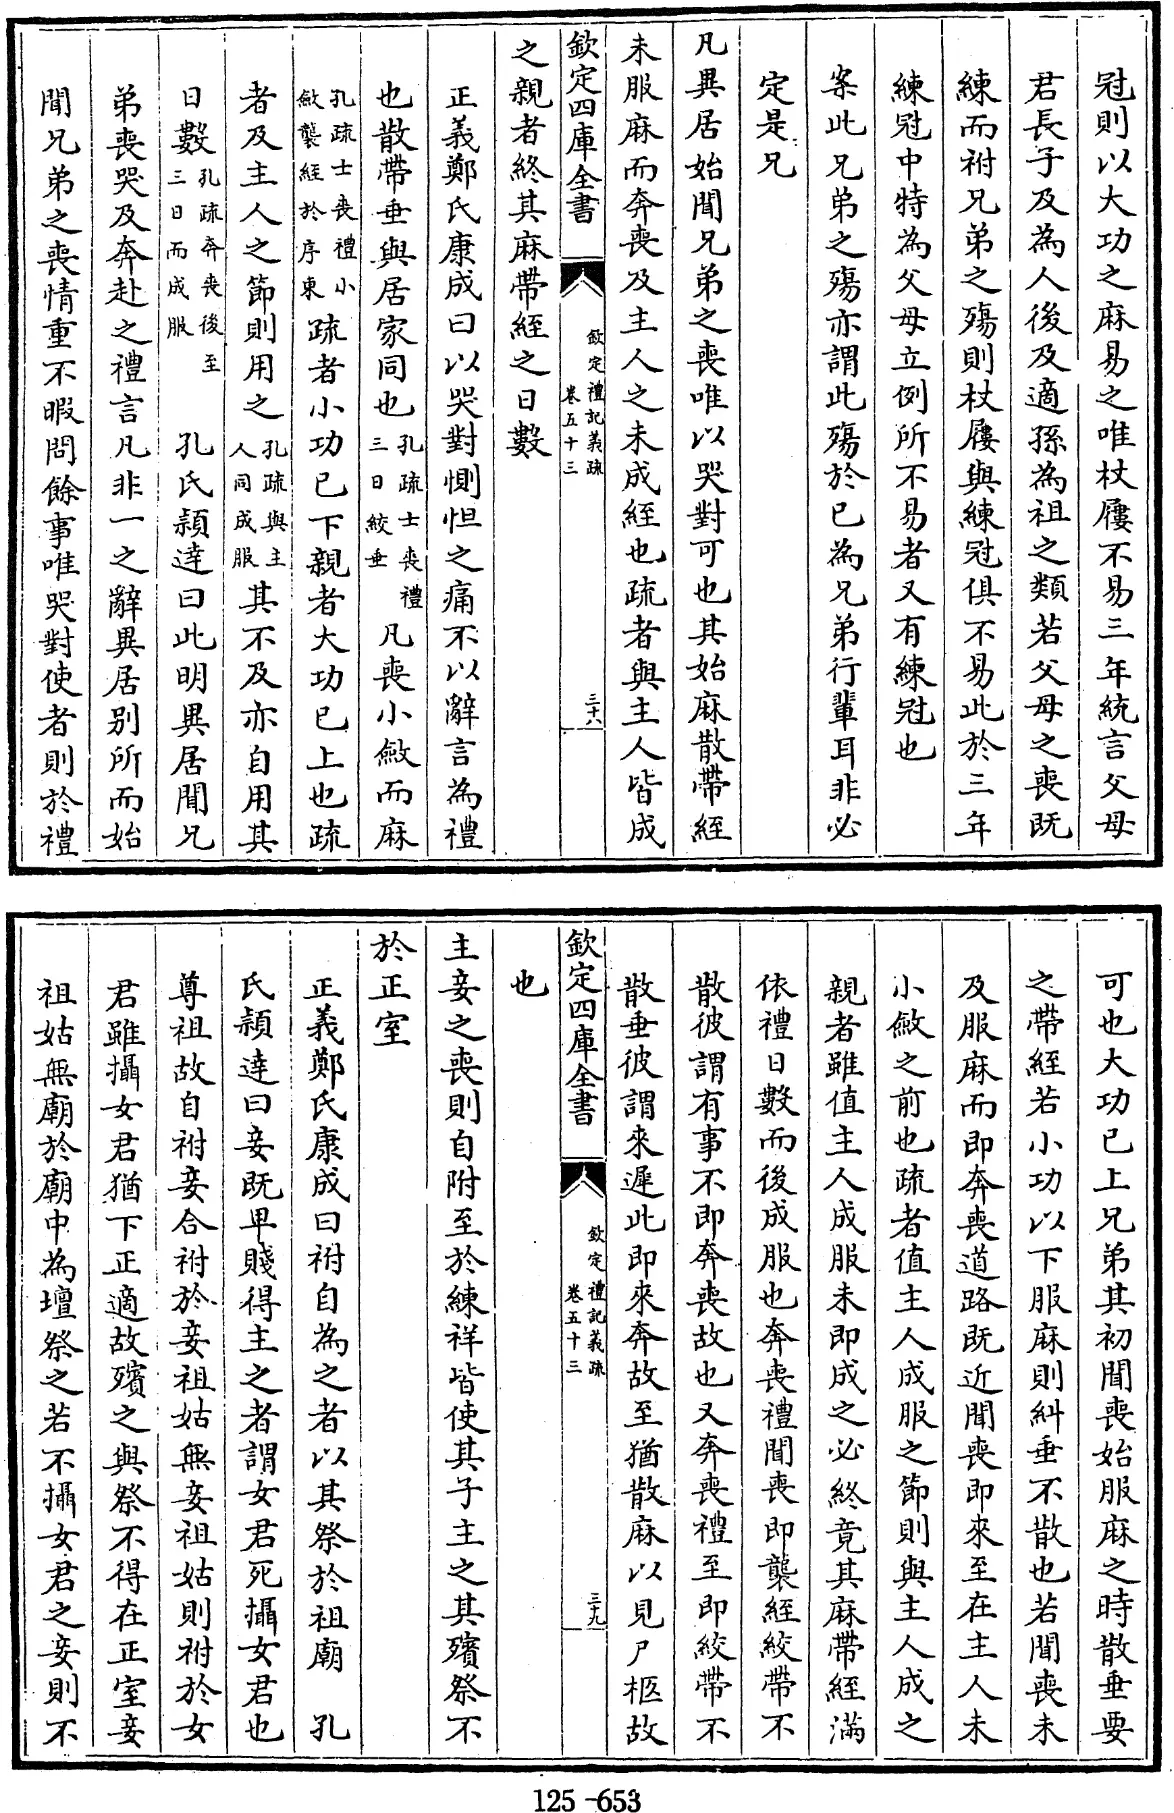 冠則以大功之麻易之唯杖屨不易三年統言父母
君長子及為人後及適孫為祖之類若父母之喪既
練而祔兄弟之殤則杖屨與練冠俱不易此於三年
練冠中特為父母立例所不易者又有練冠也
案此兄弟之殤亦謂此殤於已為兄弟行輩耳非必
定是兄
凡異居始聞兄弟之喪唯以哭對可也其始麻散帶絰
未服麻而奔喪及主人之未成絰也疏者與主人皆成
欽定四庫全書
欽定禮記義疏
卷五十三
三十八
之親者終其麻帶絰之日數
正義鄭氏康成曰以哭對惻怛之痛不以辭言為禮
也散帶垂與居家同也孔疏士喪禮三日絞垂凡喪小斂而麻
孔疏士喪禮小斂襲絰於序東疏者小功已下親者大功已上也疏
者及主人之節則用之孔疏與主人同成服其不及亦自用其
日數孔疏奔喪後至三日而成服孔氏頴達曰此明異居聞兄
弟喪哭及奔赴之禮言凡非一之辭異居別所而始
聞兄弟之喪情重不暇問餘事唯哭對使者則於禮
可也大功已上兄弟其初聞喪始服麻之時散垂要
之帶絰若小功以下服麻則糾垂不散也若聞喪未
及服麻而即奔喪道路既近聞喪即來至在主人未
小斂之前也疏者值主人成服之節則與主人成之
親者雖值主人成服未即成之必終竟其麻帶絰滿
依禮日數而後成服也奔喪禮聞喪即襲絰絞帶不
散彼謂有事不即奔喪故也又奔喪禮至即絞帶不
散垂彼謂來遲此即來奔故至猶散麻以見尸柩故
欽定四庫全書
欽定禮記義疏
卷五十三
三十九
也
主妾之喪則自附至於練祥皆使其子主之其殯祭不
於正室
正義鄭氏康成曰祔自為之者以其祭於祖廟 孔
氏頴達曰妾既卑賤得主之者謂女君死攝女君也
尊祖故自祔妾合祔於妾祖姑無妾祖姑則祔於女
君雖攝女君猶下正適故殯之與祭不得在正室妾
祖姑無廟於廟中為壇祭之若不攝女君之妾則不
125-653